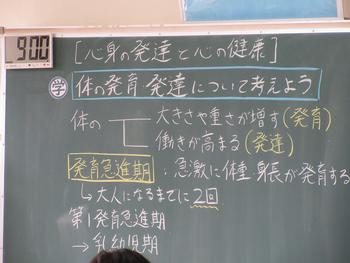 900
[心身の発達と心の健康]
学 体の発育・発達について考えよう
体の
大きさや重さが増す(発育)
働きが高まる(発達)
発育急進期:急激に体重・身長が発育する
↳大人になるまでに2回
第1発育急進期
→乳幼児期